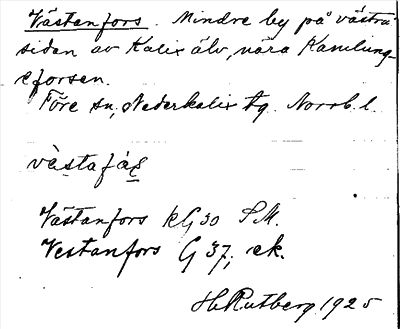 Västanfors. Mindre by på västra
sidan av Kalix älv, nära Kamlunge-
forsen.
Töre sn, Nederkalix tg. Norrb. l.
västafáʂ
Västanfors kG 30 S.M.
Vestanfors G 37, ek.
H. Rutberg. 1925